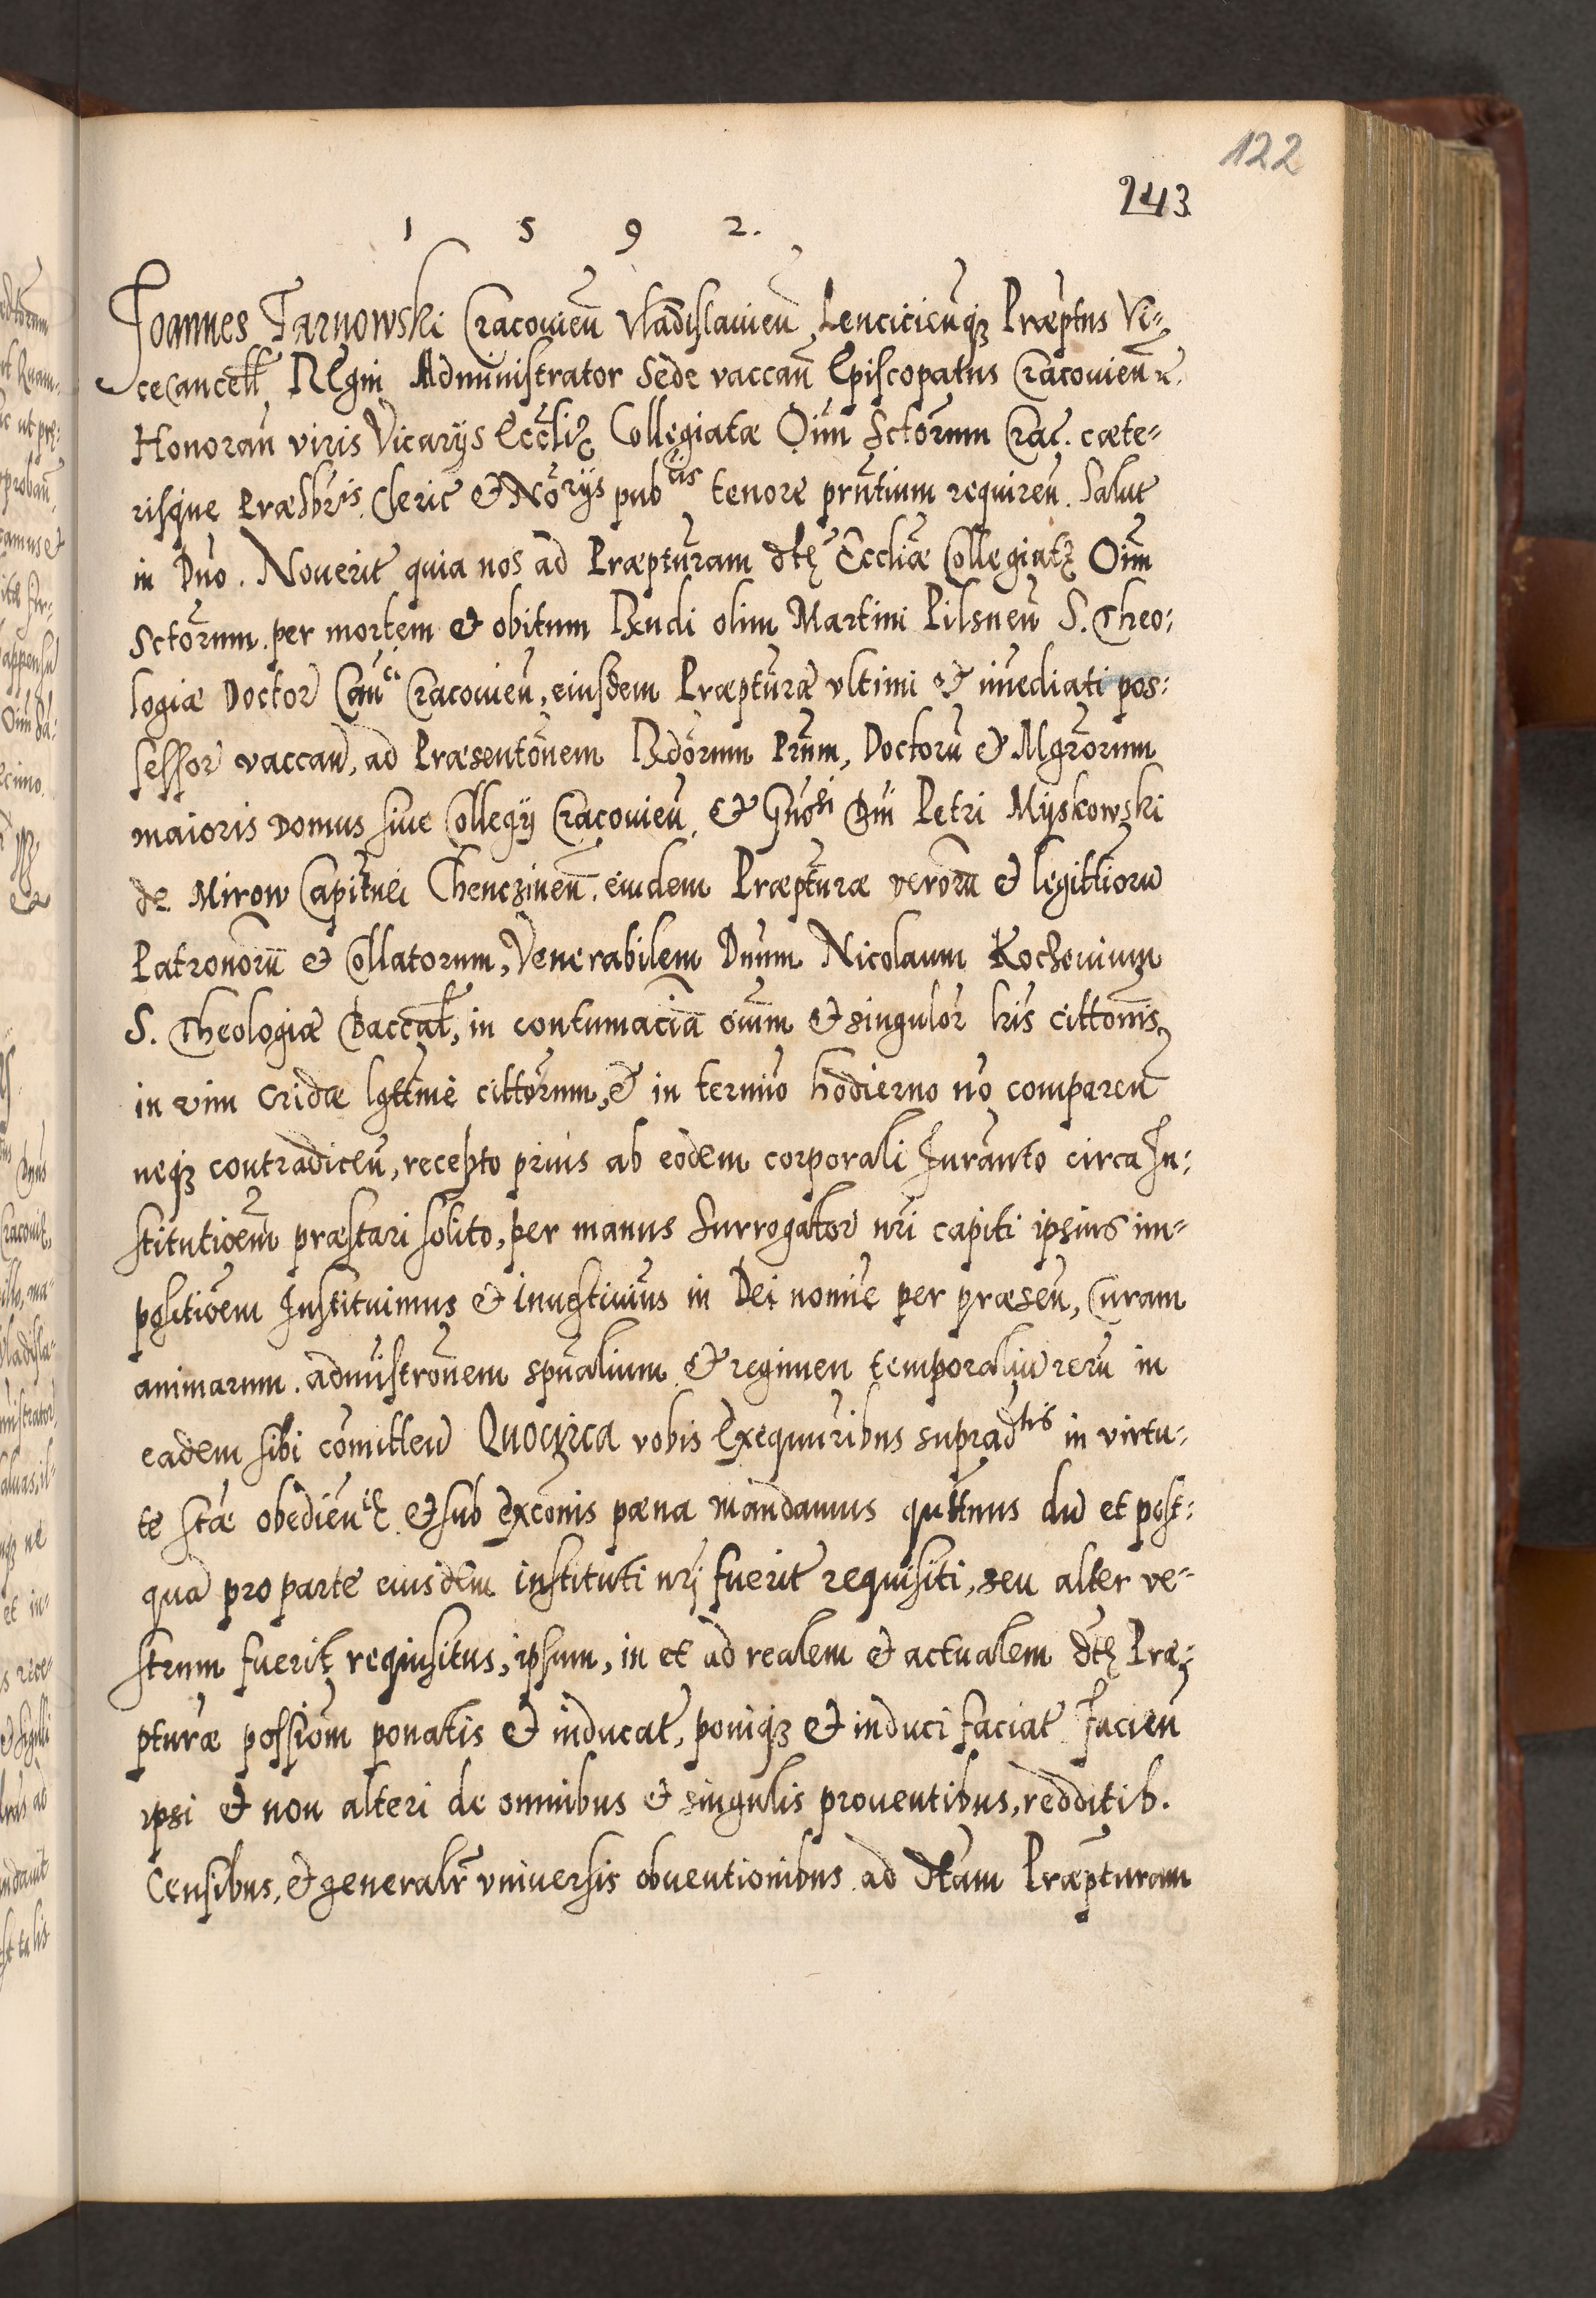 122
243
1 5 9 2.
Joannes Tarnowski Cracovień Vładislavień Lenciciēnq₃ Præptus Vi-
ceCancell Regni Administrator Sede vaccań Episcopatus Cracovień
Honorań viris Vicarijs Eccliæ Collegiatæ Oim̄ Sctōrum Crac. cæte-
risque Præsbr̄is Cleric̄ et Nōrijs pubcis tenore prn̄tium requireń. Salut̄
in Dn̄o. Noverit̄ quia nos ad Præptūram dtę Eccliæ Collegiatę Oim̄
Sctōrum per mortem et obitum Rn̄di olim Martini Pilsneń S. Theo:
logiæ Doctor̄ Cancī Cracovień, eiusdem Præptūræ vltimi et im̄ediati pos:
sessor̄ vaccań, ad Præsentōnem Rdōrum Prūm, Doctorū et Mgrōrum
maioris Domus siue Collegij Cracovień, et Gn̄osi Dn̄i Petri Mÿskowski
de Mirow Capitnei Chenczineń. eiudem Præptūræ verōrū et legittiorū
Patronorū et Collatorum, Venerabilem Dn̄um Nicolaum Kochovium
S. Theologiæ Baccal̄, in contumaciā oīum et singulor̄ hr̄is cittōnis
in vim Cridæ lgttme cittōrum, et in termīo hodierno nō compareń
neq₃ contradiceń, recepto prius ab eodem corporali Iurānto circa In:
stitutiōem præstari solito, per manus Surrogator̄ nr̄i capiti ipsius im-
positiōem Instituimus et inuestimus in Dei nomīe per præseń, Curam
animarum. admīstrōnem spūalium et regimen temporaliū rerū in
eadem sibi com̄itteń Quocirca vobis Exequūribus supradtis in virtu:
te stæ obedień et sub excōnis pæna mandamus quttnus dū et post:
quā pro parte eiusdem instituti nr̄i fuerit̄ requisiti, seu alter ve-
strum fuerit requisitus, ipsum, in et ad realem et actualem dtę Præ:
pturæ possiōm ponatis et inducat̄, poniq₃ et induci faciat̄ Facień
ipsi et non alteri de omnibus et singulis prouentibus, redditib.
Censibus, et generalr̄ vniuersis obuentionibus ad dtam Præpturam